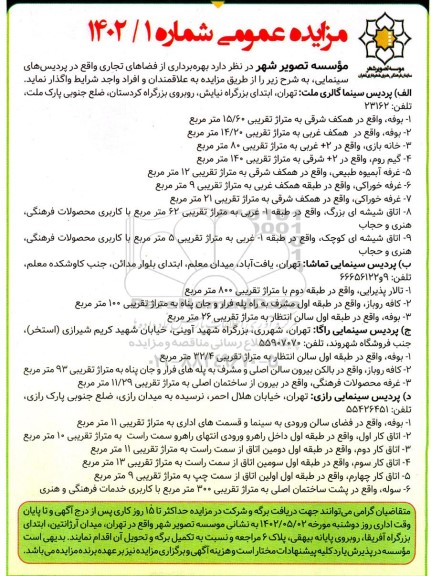 مزایده عمومی شماره ۱ / ۱۴۰۲
موسسه تصویر شهر
مؤسسه تصویر شهر در نظر دارد بهره‌برداری از فضاهای تجاری واقع در پردیس‌های
سینمایی، به شرح زیر را از طریق مزایده به علاقمندان و افراد واجد شرایط واگذار نماید.
الف) پردیس سینما گالری ملت: تهران، ابتدای بزرگراه نیایش، روبروی بزرگراه کردستان، ضلع جنوبی پارک ملت،
تلفن: ۲۳۱۶۲
۱- بوفه، واقع در همکف شرقی به متراژ تقریبی ۱۵/۶۰ متر مربع
۲- بوفه، واقع در همکف غربی به متراژ تقریبی ۱۴/۲۰ متر مربع
۳- خانه بازی، واقع در ۲+ غربی به متراژ تقریبی ۸۰ متر مربع
۴- گیم روم، واقع در ۲+ شرقی به متراژ تقریبی ۱۴۰ متر مربع
۵- غرفه آبمیوه طبیعی، واقع در همکف شرقی به متراژ تقریبی ۱۲ متر مربع
۶- غرفه خوراکی، واقع در طبقه همکف غربی به متراژ تقریبی ۹ متر مربع
۷- غرفه خوراکی، واقع در همکف شرقی به متراژ تقریبی ۲۱ متر مربع
۸- اتاق شیشه ای بزرگ، واقع در طبقه ۱- غربی به متراژ تقریبی ۶۲ متر مربع با کاربری محصولات فرهنگی،
هنری و حجاب
۹- اتاق شیشه ای کوچک، واقع در طبقه ۱- غربی به متراژ تقریبی ۵ متر مربع با کاربری محصولات فرهنگی،
هنری و حجاب
ب) پردیس سینمایی تماشا: تهران، یافت‌آباد، میدان معلم، ابتدای بلوار مدائن، جنب کاوشکده معلم،
تلفن: ۹و۶۶۶۵۶۱۲۲
۱- تالار پذیرایی، واقع در طبقه دوم با متراژ تقریبی ۸۰۰ متر مربع
۲- کافه روباز، واقع در طبقه اول مشرف به راه پله فرار و جان پناه به متراژ تقریبی ۱۰۰ متر مربع
۳- بوفه، واقع در طبقه اول سالن انتظار به متراژ تقریبی ۲۶ متر مربع
ج) پردیس سینمایی راگا: تهران، شهرری، بزرگراه شهید آوینی، خیابان شهید کریم شیرازی (استخر)،
جنب فروشگاه شهروند، تلفن: ۵۵۹۰۷۰۷۰
۱- بوفه، واقع در طبقه اول سالن انتظار به متراژ تقریبی ۳۲/۴ متر مربع
۲- کافه روباز، واقع در بالکن بیرون سالن اصلی و مشرف به پله های فرار و جان پناه به متراژ تقریبی ۹۳ متر مربع
۳- غرفه محصولات فرهنگی، واقع در بیرون از ساختمان اصلی به متراژ تقریبی ۱۱/۲۹ متر مربع
د) پردیس سینمایی رازی: تهران، خیابان هلال احمر، نرسیده به میدان رازی، ضلع جنوبی پارک رازی،
تلفن: ۵۵۴۲۶۴۵۱
۱- بوفه، واقع در فضای سالن ورودی به سینما و قسمت های اداری به متراژ تقریبی ۱۱ متر مربع
۲- اتاق کار اول، واقع در طبقه اول داخل راهرو ورودی انتهای راهرو سمت راست به متراژ تقریبی ۱۰ متر مربع
۳- اتاق کار دوم، واقع در طبقه اول دومین اتاق از سمت راست به متراژ تقریبی ۱۱ متر مربع
۴- اتاق کار سوم، واقع در طبقه اول سومین اتاق از سمت راست به متراژ تقریبی ۱۳ متر مربع
۵- اتاق کار چهارم، واقع در طبقه اول اولین اتاق از سمت چپ به متراژ تقریبی ۹ متر مربع
۶- سوله، واقع در پشت ساختمان اصلی به متراژ تقریبی ۳۰۰ متر مربع با کاربری خدمات فرهنگی و هنری
متقاضیان گرامی می‌توانند جهت دریافت برگه و شرکت در مزایده حداکثر تا ۱۵ روز کاری پس از درج آگهی و تا پایان
وقت اداری روز دوشنبه مورخه ۱۴۰۲/۰۵/۰۲ به نشانی موسسه تصویر شهر واقع در تهران، میدان آرژانتین، ابتدای
بزرگراه آفریقا، روبروی پایانه بیهقی، پلاک ۶ مراجعه و نسبت به تکمیل برگه و تحویل آن اقدام نمایند. بدیهی است
مؤسسه در پذیرش یا رد کلیه پیشنهادات مختار است و هزینه آگهی و برگزاری مزایده نیز بر عهده برنده مزایده می‌باشد.